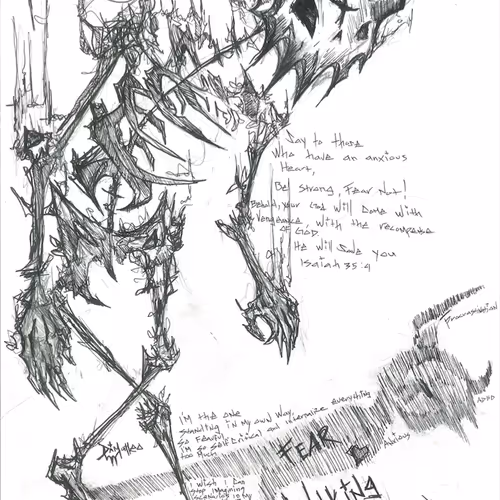 Say to those
Who have an anxious
Heart,
Be strong, Fear Not!
Behold, your God will come with
Vengeance, with the recompense
OF GOD.
He will save you
Isaiah 35:4
Procrastination
ADHD
Anxious
I'm the one
standing in my own way.
So fearful
I'm so self critical and internalize everything
too much
I wish I can
stop imagining
FEAR
LIVING